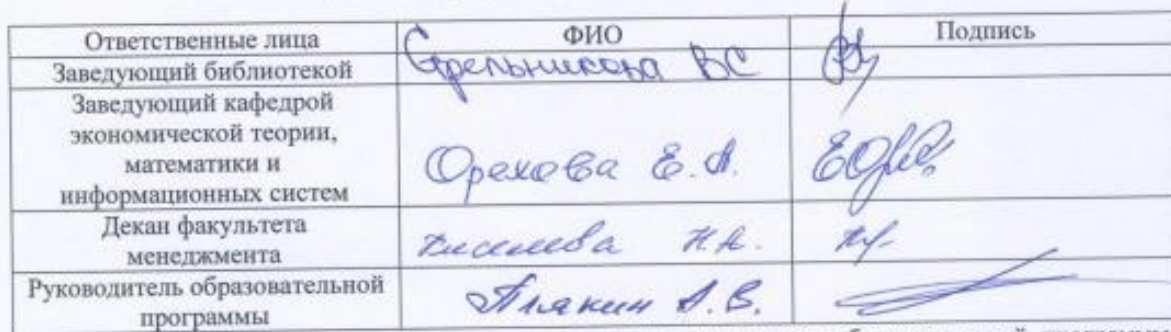 Ответственные лица ФИО Подпись
Заведующий библиотекой Стрельникова ВС
Заведующий кафедрой
экономической теории,
математики и
информационных систем
Орехова Е.А.
Декан факультета
менеджмента
Киселева Н.Н.
Руководитель образовательной
программы
Плякин А.В.